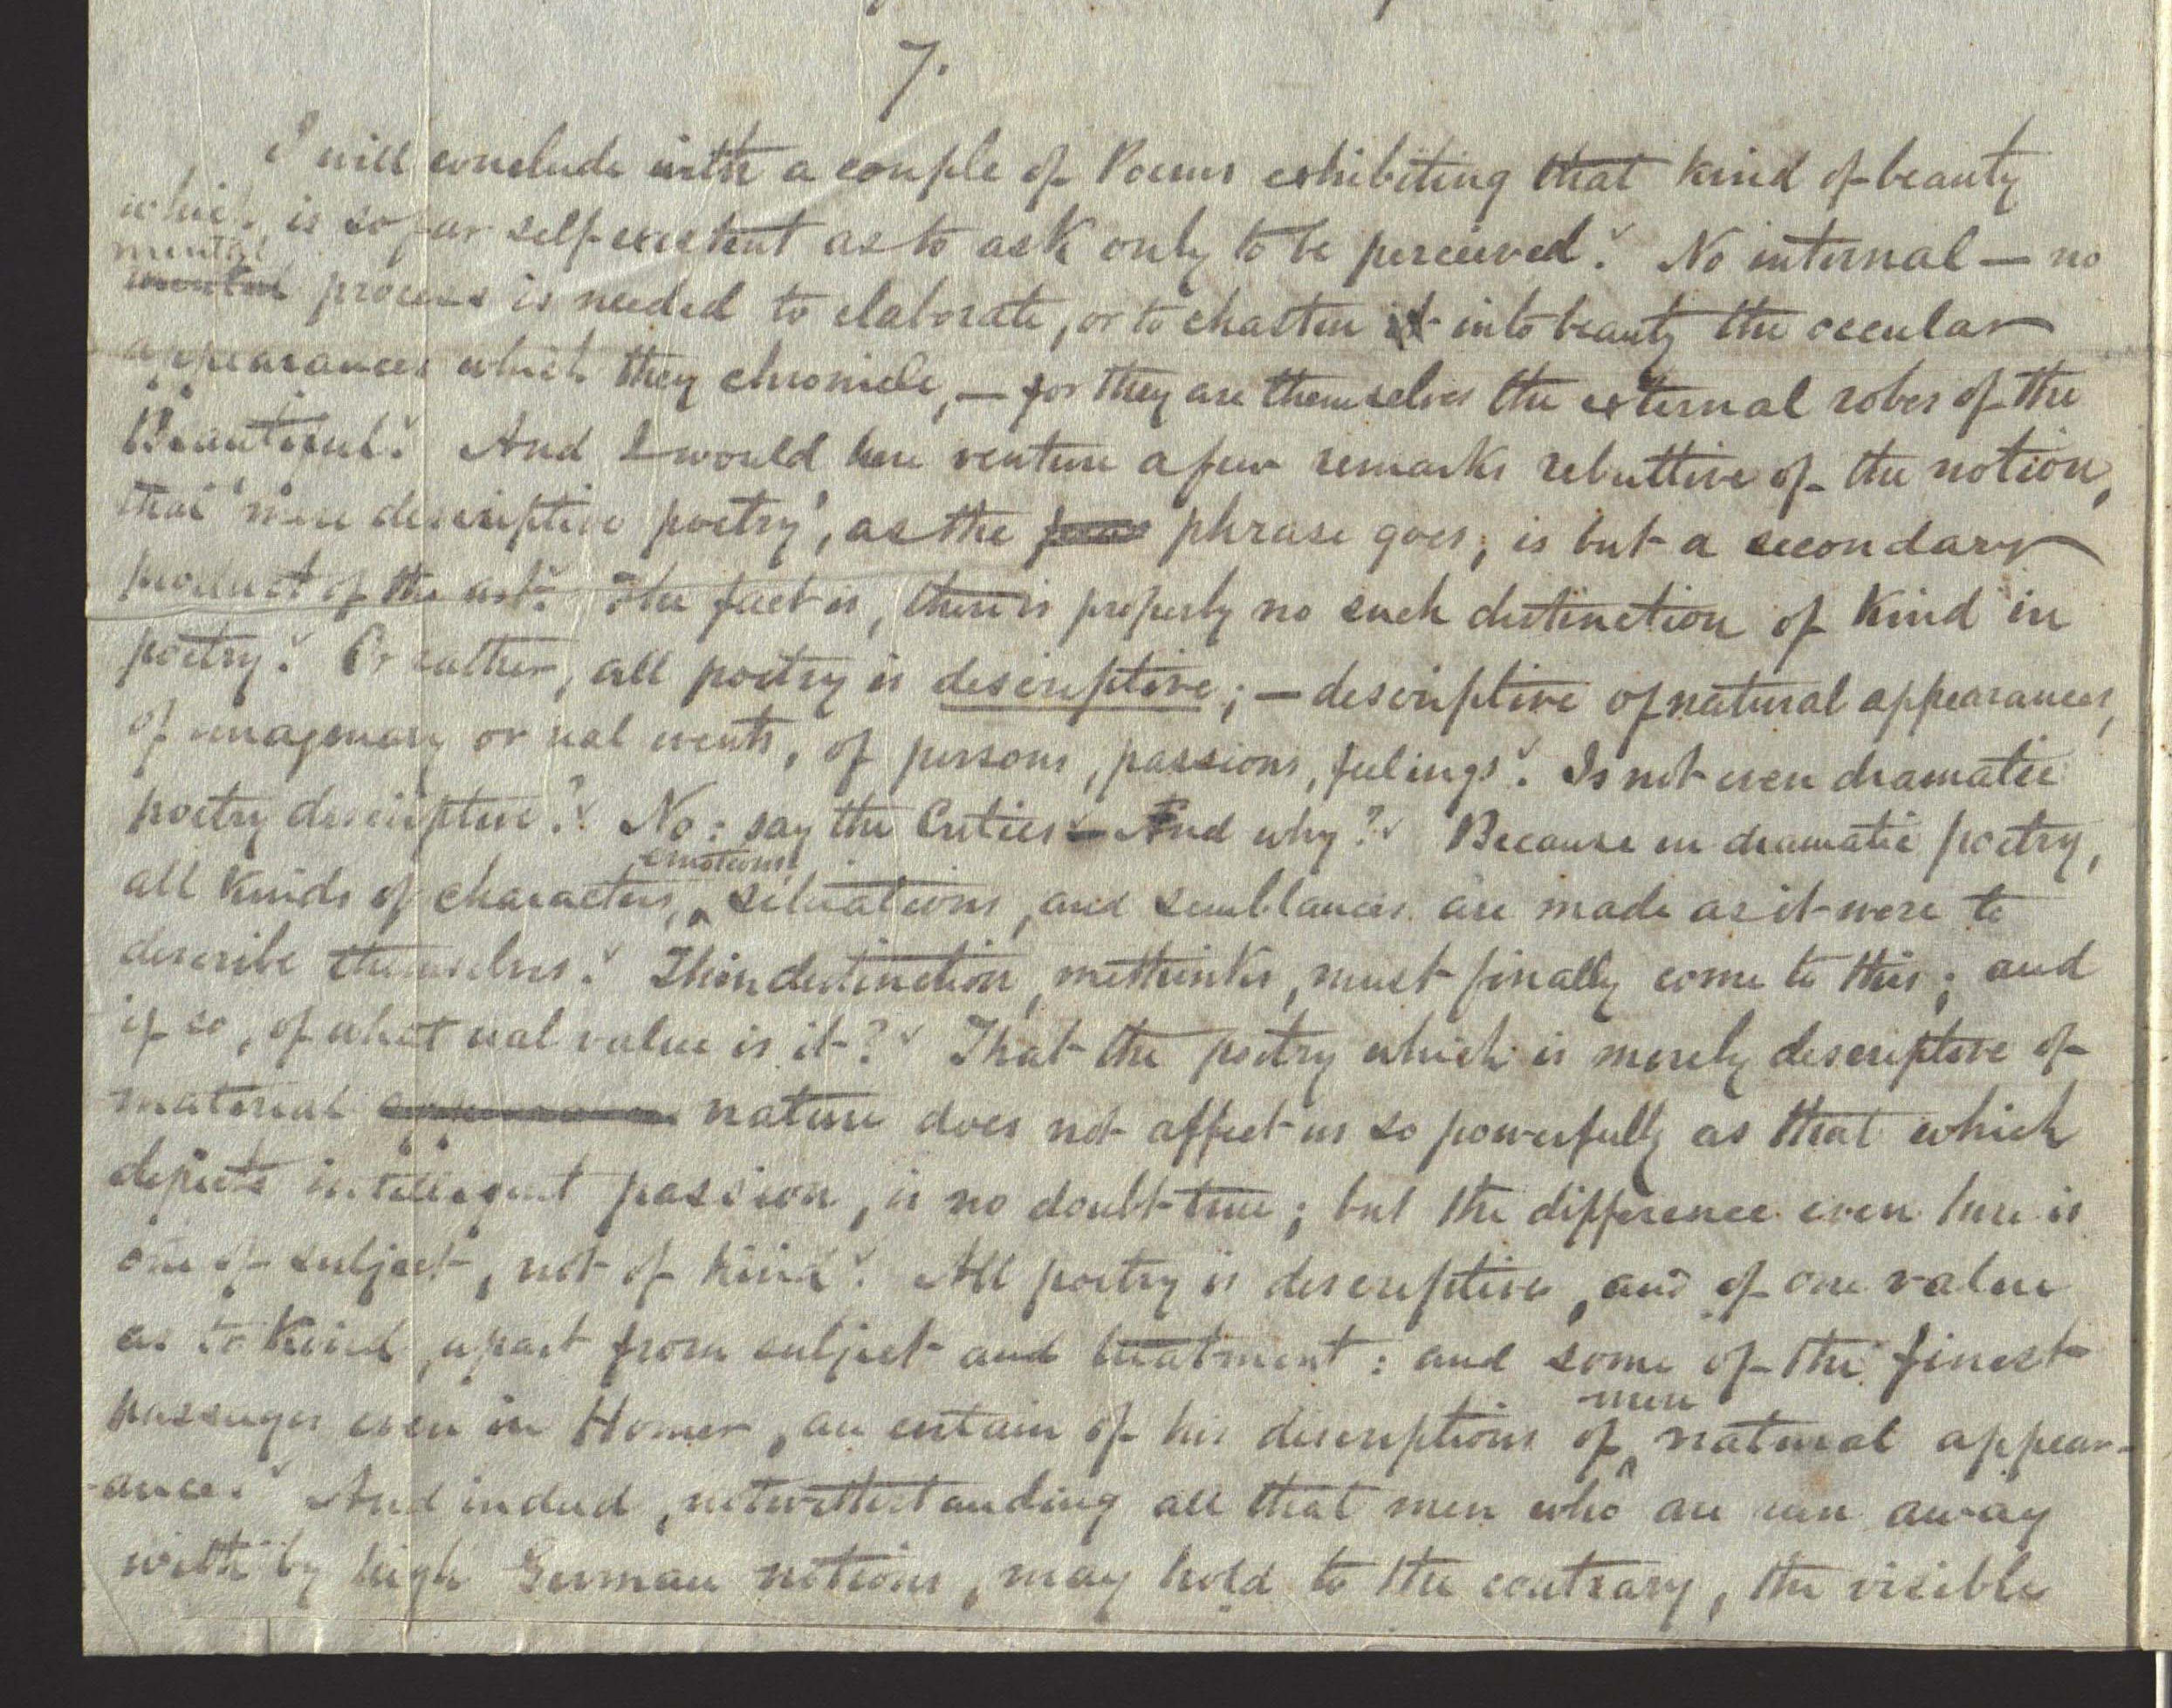 7.
I will conclude with a couple of Poems exhibiting that kind of beauty
which is so far self-existent as to ask only to be perceived. No internal — no
mental
mental process is needed to elaborate, or to chasten it into beauty the occular
appearances which they chronicle, — for they are themselves the external robes of the
Beautiful. And I would here venture a few remarks rebuttive of the notion,
that 'mere descriptive poetry', as the phrase goes, is but a secondary
product of the art. The fact is, there is properly no such distinction of kind in
poetry. Or rather, all poetry is descriptive; — descriptive of natural appearances,
of imaginary or real events, of persons, passions, feelings. Is not even dramatic
poetry descriptive? No: say the Critics — And why? Because in dramatic poetry,
emotions,
all kinds of characters, situations, and semblances are made as it were to
describe themselves. This distinction, methinks, must finally come to this; and
if so, of what real value is it? That the poetry which is merely descriptive of
material nature does not affect us so powerfully as that which
depicts intelligent passion, is no doubt true; but the difference even here is
one of subject, not of kind. All poetry is descriptive, and of one value
as to kind, apart from subject and treatment: and some of the finest
mere
passages even in Homer, are certain of his descriptions of natural appear-
-ance. And indeed, notwithstanding all that men who are run away
with by high German notions, may hold to the contrary, the visible